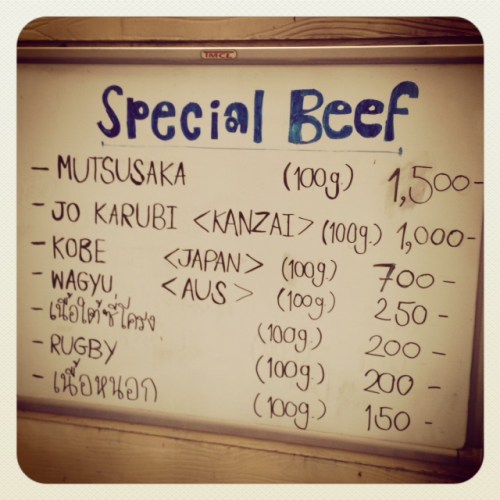 IMCL
Special Beef
- MUTSUSAKA (100g.) 1,500-
- JO KARUBI <KANZAI> (100g.) 1,000-
- KOBE <JAPAN> (100g.) 700-
- WAGYU <AUS> (100g.) 250-
- เนื้อใต้ซี่โครง (100g.) 200-
- RUGBY (100g.) 200-
- เนื้อหนอก (100g.) 150-